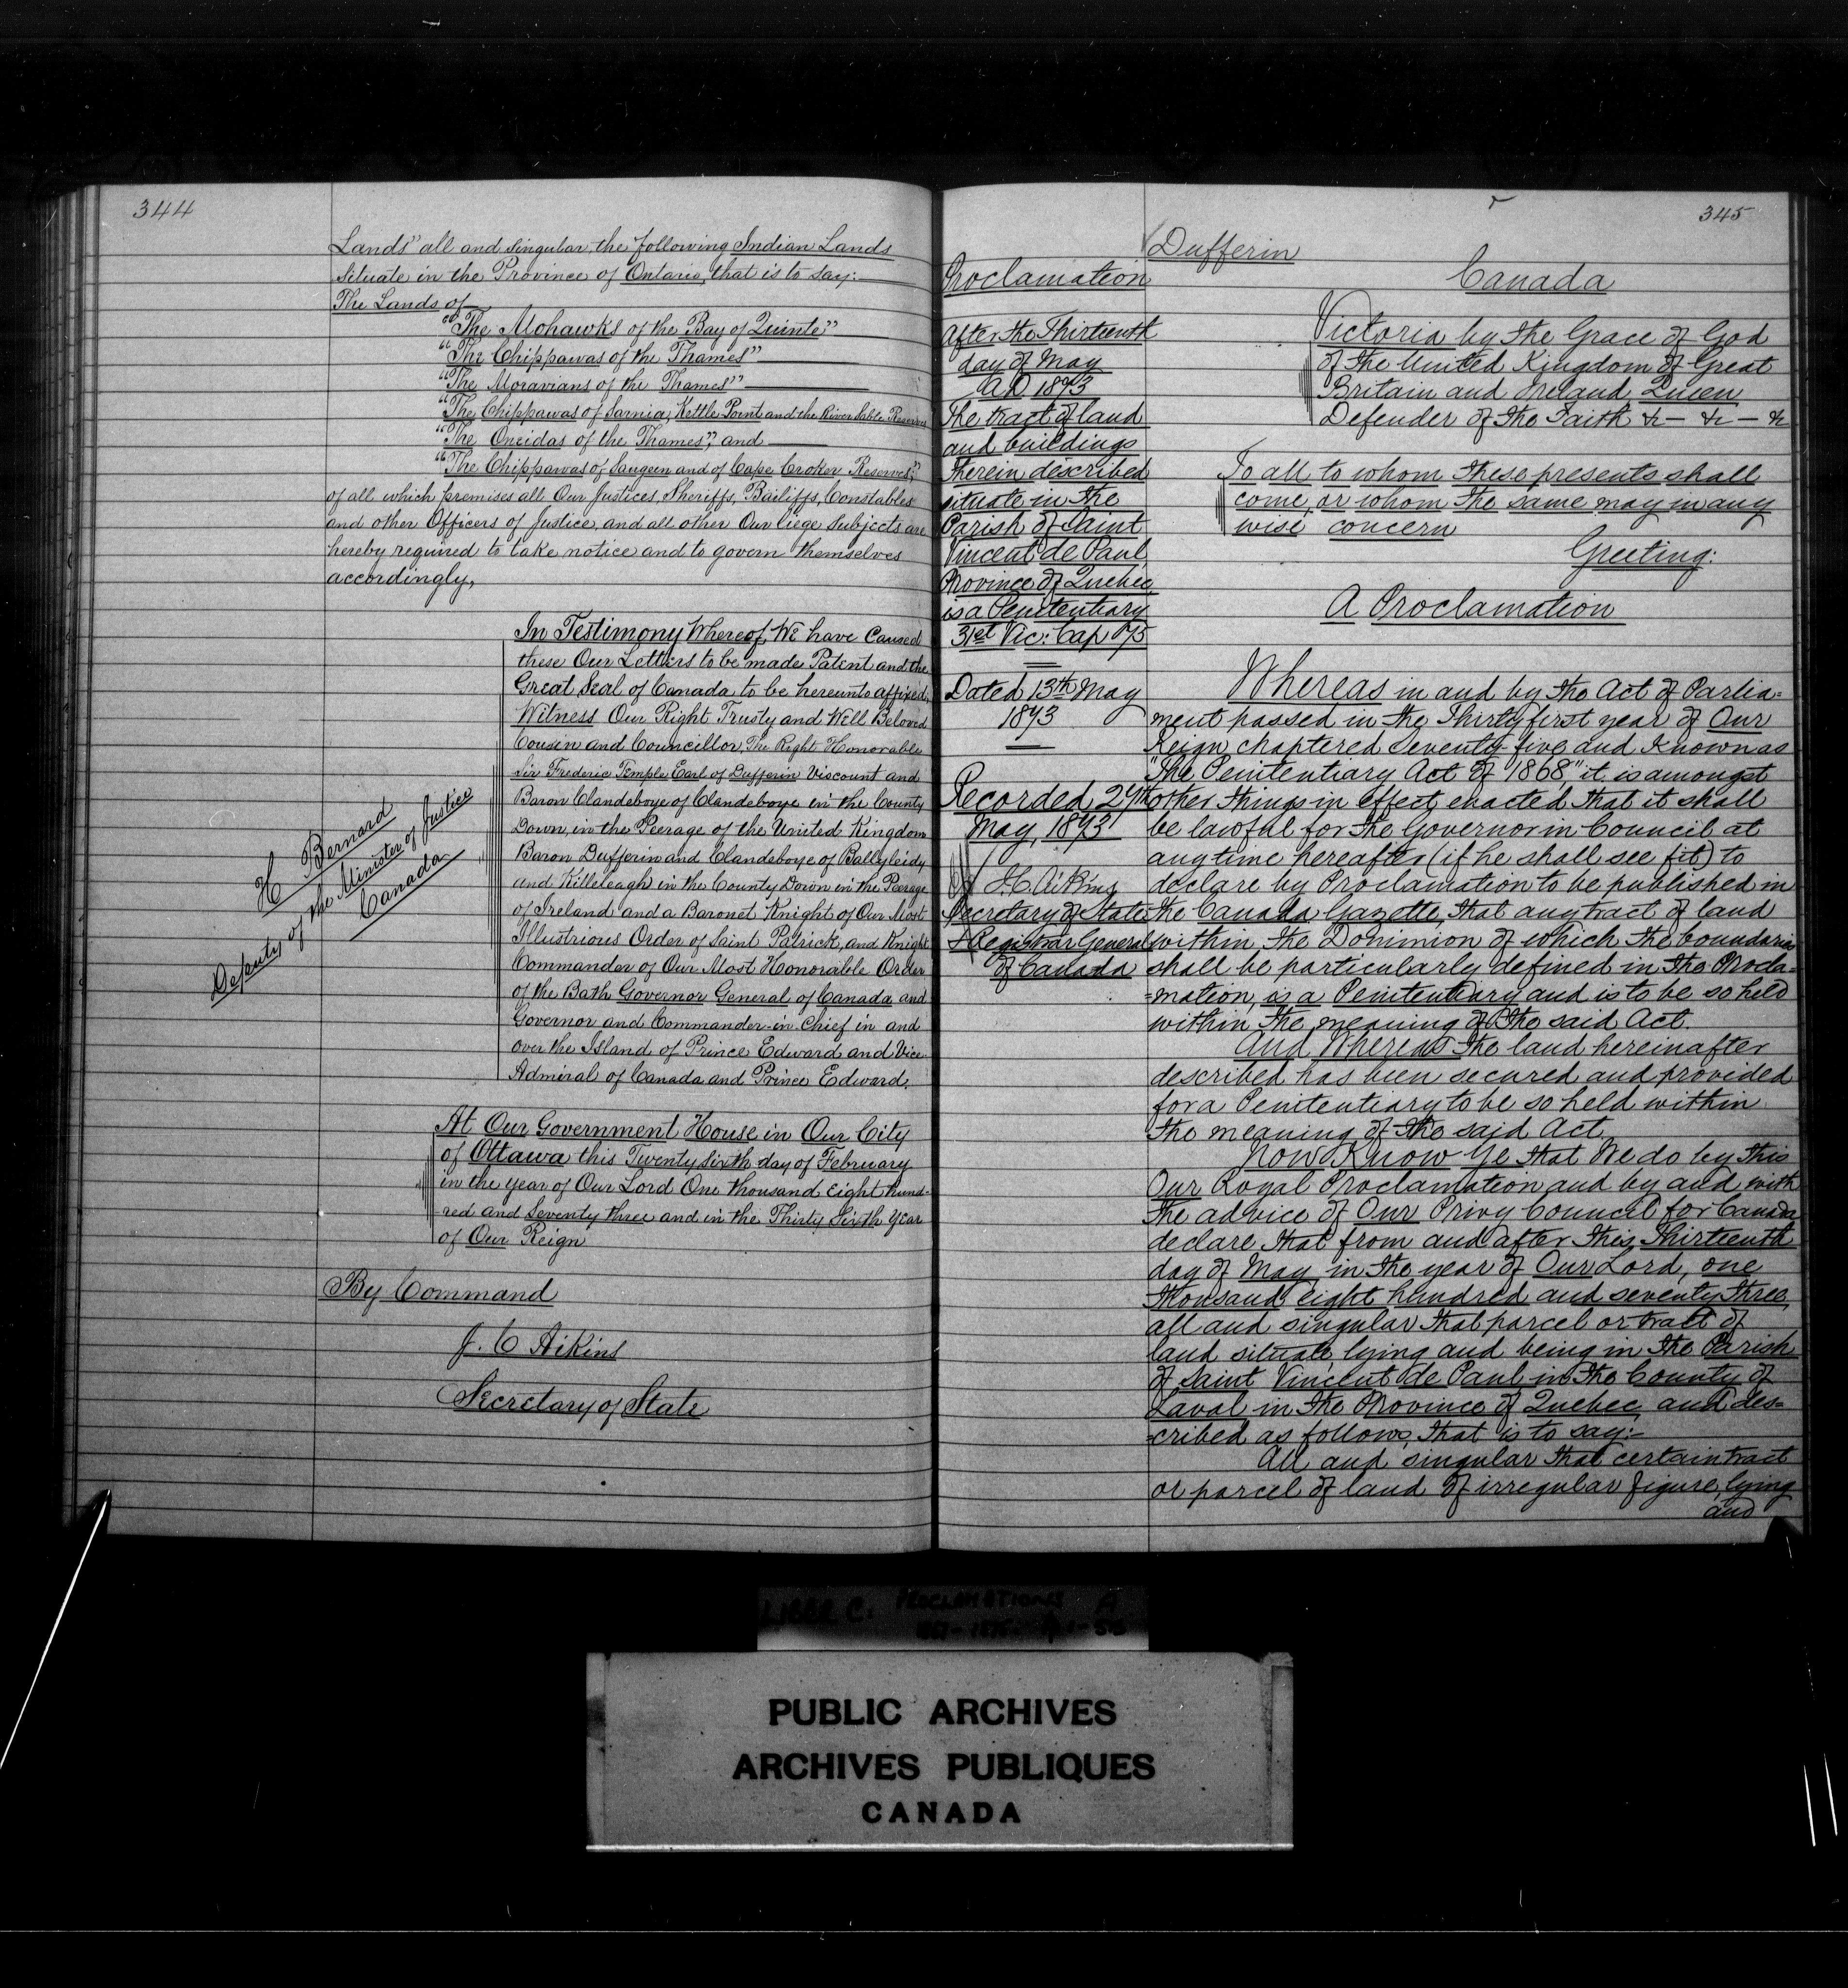 344
Lands" all and singular the following Indian Lands
situate in the Province of Ontario, that is to say:
The Lands of
"The Mohawks of the Bay of Quinte"
"The Chippawas of the Thames"
"The Moravians of the Thames"
"The Chippawas of Sarnia, Kettle Point and the River Sable Reserves
"The Oneidas of the Thames", and
"The Chippawas of Saugeen and of Cape Croker Reserves;"
of all which premises all Our Justices, Sheriffs, Bailiffs, Constables
and other Officers of Justice, and all other Our liege Subjects are
hereby required to take notice and to govern themselves
accordingly,
In Testimony Whereof, We have Caused
these Our Letters to be made Patent and the
Great Seal of Canada to be hereunto affixed,
Witness Our Right Trusty and Well Beloved
Cousin and Councillor, The Right Honorable
Sir Frederic Temple Earl of Dufferin Viscount and
Baron Clandeboye of Clandeboye in the County
Down, in the Peerage of the United Kingdom
Baron Dufferin and Clandeboye of Ballyleidy
and Killeleagh in the County Down in the Peerage
of Ireland and a Baronet Knight of Our Most
Illustrious Order of Saint Patrick, and Knight
Commander of Our Most Honorable Order
of the Bath Governor General of Canada and
Governor and Commander-in-Chief in and
over the Island of Prince Edward and Vice
Admiral of Canada and Prince Edward.
H Bernard
Deputy of the Minister of Justice
Canada
At Our Government House in Our City
of Ottawa this Twenty Sixth day of February
in the year of Our Lord One thousand Eight hund-
red and Seventy three and in the Thirty Sixth Year
of Our Reign
By Command
J. C Aikins
Secretary of State
345
Dufferin
Proclamation
After the Thirteenth
day of May
AD 1873
The tract of land
and buildings
therein described
situate in the
Parish of Saint
Vincent de Paul
Province of Quebec
is a Penitentiary
31st Vic: Cap 75
Dated 13th May
1873
Recorded 29th
May, 1873
J. C. Aikins
Secretary of State
& Registrar General
of Canada
Canada
Victoria by the Grace of God
of the United Kingdom of Great
Britain and Ireland Queen
Defender of the Faith &c — &c — &c
To all to whom these presents shall
come, or whom the same may in any
wise concern
Greeting:
A Proclamation
Whereas in and by the Act of Parlia=
ment passed in the Thirty first year of Our
Reign, chaptered seventy-five and Known as
"The Penitentiary Act of 1868," it is amongst
other things in effect enacted that it shall
be lawful for the Governor in Council at
any time hereafter (if he shall see fit) to
declare by Proclamation to be published in
the Canada Gazette, that any tract of land
within the Dominion of which the boundaries
shall be particularly defined in the Procla=
=mation, is a Penitentiary and is to be so held
within the meaning of the said Act.
And Whereas the land hereinafter
described has been secured and provided
for a Penitentiary to be so held within
the meaning of the said Act.
Now Know Ye that We do by this
Our Royal Proclamation and by and with
the advice of Our Privy Council for Canada
declare that from and after this Thirteenth
day of May, in the year of Our Lord, one
thousand eight hundred and seventy three,
all and singular that parcel or tract of
land situate, lying and being in the Parish
of Saint Vincent de Paul in the County of
Laval in the Province of Quebec, and des=
=cribed as follows, that is to say:-
All and singular that certain tract
or parcel of land of irregular figure, lying
and
PROCLAMATIONS A
PUBLIC ARCHIVES
ARCHIVES PUBLIQUES
CANADA